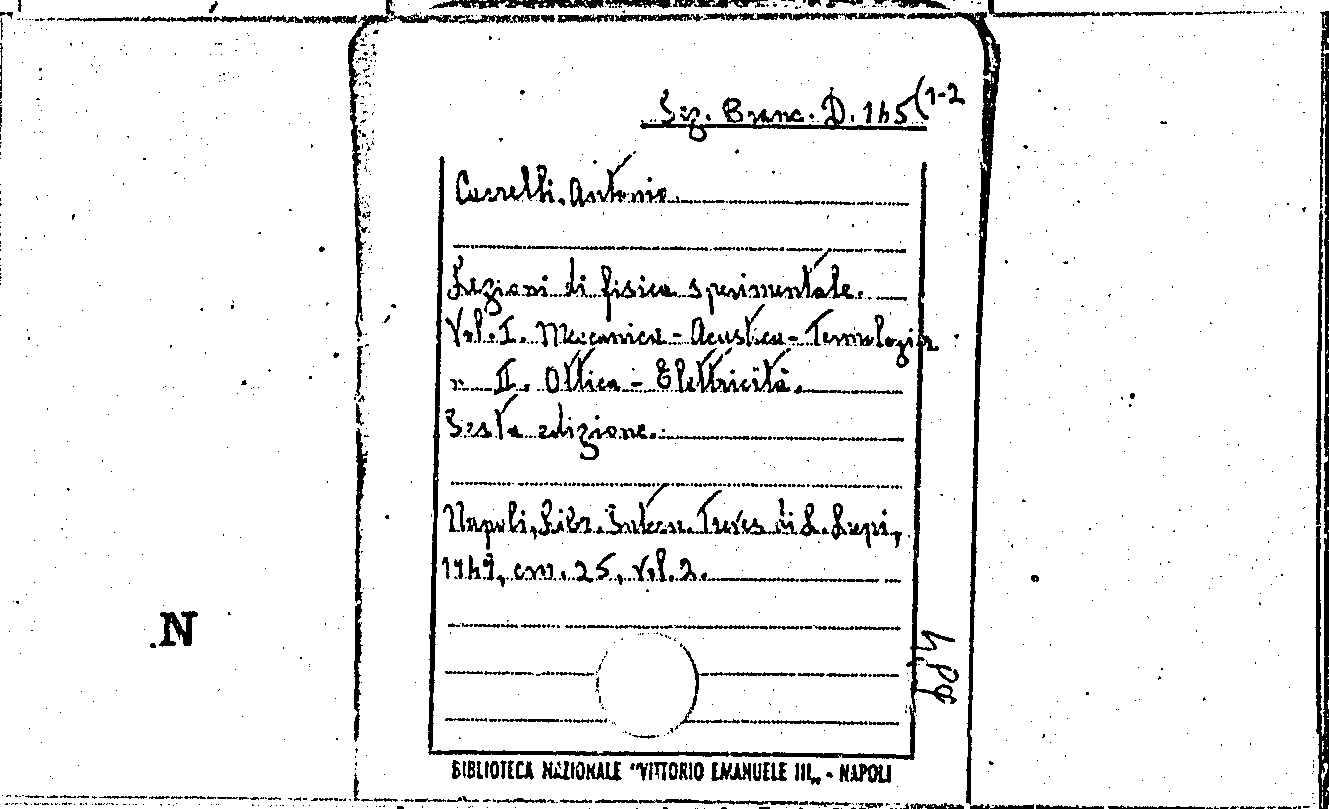 Sez. Branc. D. 145 (1-2
Carrelli, Antonio.
Lezioni di fisica sperimentale.
Vol. I. Meccanica - Acustica - Termologia
" II. Ottica - Elettricità.
Sesta edizione.
Napoli, Libr. Intern. Treves di L. Lupi,
1949, cm. 25, vol. 2.
N
BIBLIOTECA NAZIONALE "VITTORIO EMANUELE III„ - NAPOLI